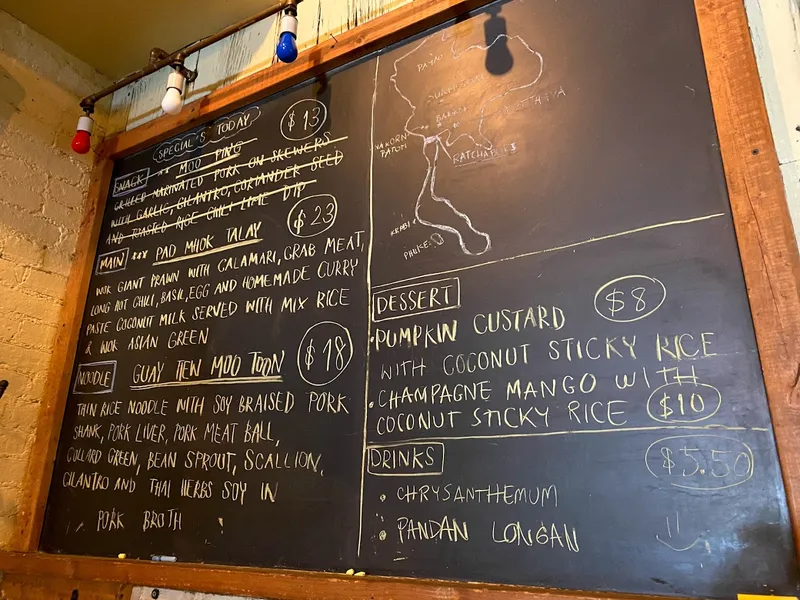 SPECIAL'S TODAY
$13
SNACK ** MOO PING
GRILLED MARINATED PORK ON SKEWERS
WITH GARLIC, CILANTRO, CORIANDER SEED
AND TOASTED RICE CHILI LIME DIP
$23
MAIN *** PAD MHOK TALAY
WOK GIANT PRAWN WITH CALAMARI, CRAB MEAT,
LONG HOT CHILI, BASIL, EGG AND HOMEMADE CURRY
PASTE COCONUT MILK SERVED WITH MIX RICE
& WOK ASIAN GREEN
NOODLE GUAY TIEW MOO TOON $18
THIN RICE NOODLE WITH SOY BRAISED PORK
SHANK, PORK LIVER, PORK MEAT BALL,
COLLARD GREEN, BEAN SPROUT, SCALLION,
CILANTRO AND THAI HERBS SOY IN
PORK BROTH
PHUKET
DESSERT $8
•PUMPKIN CUSTARD
WITH COCONUT STICKY RICE
•CHAMPAGNE MANGO WITH
COCONUT STICKY RICE $10
DRINKS $5.50
• CHRYSANTHEMUM
• PANDAN LONGAN